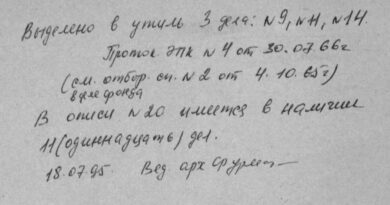 Выделено в утиль 3 дела: №9, №11, №14.
Проток ЭПК №4 от 30.07.66г
(см. отбор. сп. №2 от 4.10.65г)
в деле фонда
В описи №20 имеется в наличии
11 (одиннадцать) дел.
18.07.95. Вед арх